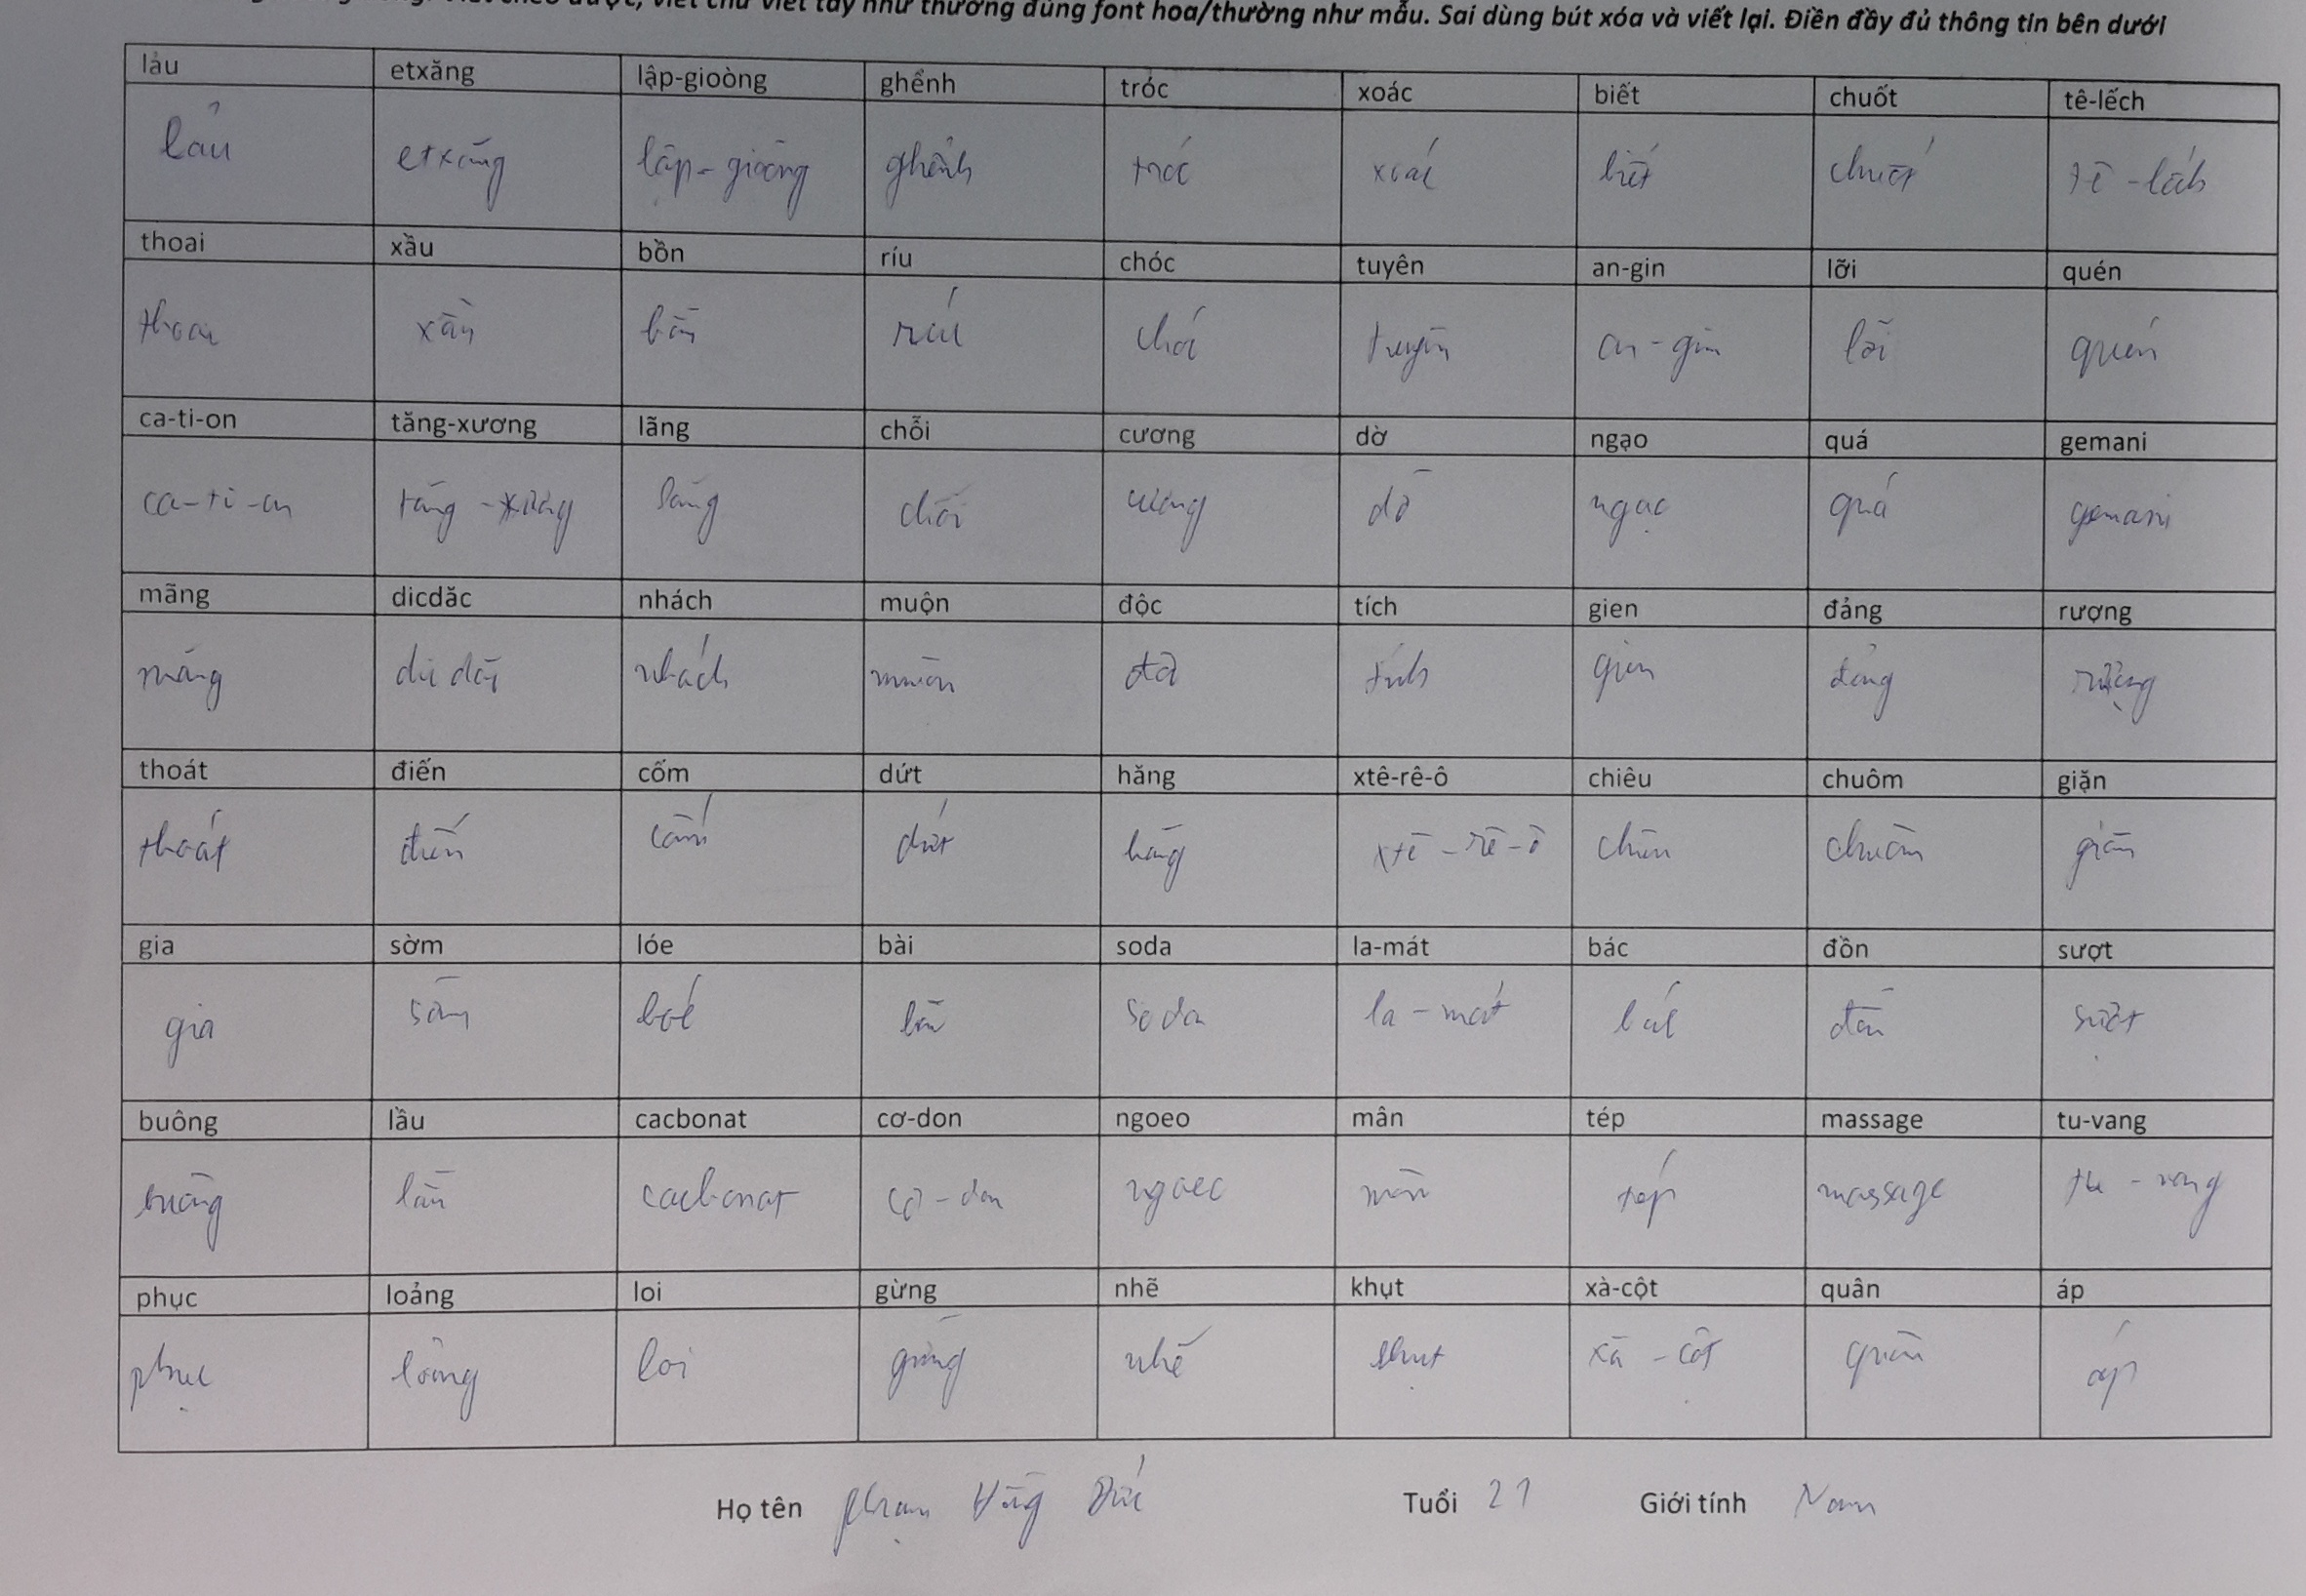 viết chữ viết tay như thường đúng font hoa/thường như mẫu. Sai dùng bút xóa và viết lại. Điền đầy đủ thông tin bên dưới
lảu etxăng lập-gioòng ghểnh tróc xoác biết chuốt tê-lếch
lảu etxăng lập-gioòng ghểnh tróc xoác biết chuốt tê-lếch
thoai xầu bồn ríu chóc tuyên an-gin lỡi quén
thoai xầu bồn ríu chóc tuyên an-gin lỡi quén
ca-ti-on tăng-xương lãng chỗi cương dờ ngạo quá gemani
ca-ti-on tăng-xương lãng chỗi cương dờ ngạo quá gemani
mãng dicdăc nhách muộn độc tích gien đảng rượng
mãng dicdăc nhách muộn độc tích gien đảng rượng
thoát điến cốm dứt hăng xtê-rê-ô chiêu chuôm giặn
thoát điến cốm dứt hăng xtê-rê-ô chiêu chuôm giặn
gia sờm lóe bài soda la-mát bác đồn sượt
gia sờm lóe bài soda la-mát bác đồn sượt
buông lầu cacbonat cơ-don ngoeo mân tép massage tu-vang
buông lầu cacbonat cơ-don ngoeo mân tép massage tu-vang
phục loảng loi gừng nhẽ khụt xà-cột quân áp
phục loảng loi gừng nhẽ khụt xà-cột quân áp
Họ tên Phạm Đức Tuổi 21 Giới tính Nam